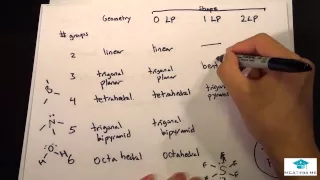 Shape
Geometry 0 LP 1 LP 2 LP
# groups
2 linear linear —
3 trigonal planar trigonal planar
4 tetrahedal tetrahedal trigonal
5 trigonal bipyramid trigonal bipyramid
6 octahedal octahedal
B
N
O
H